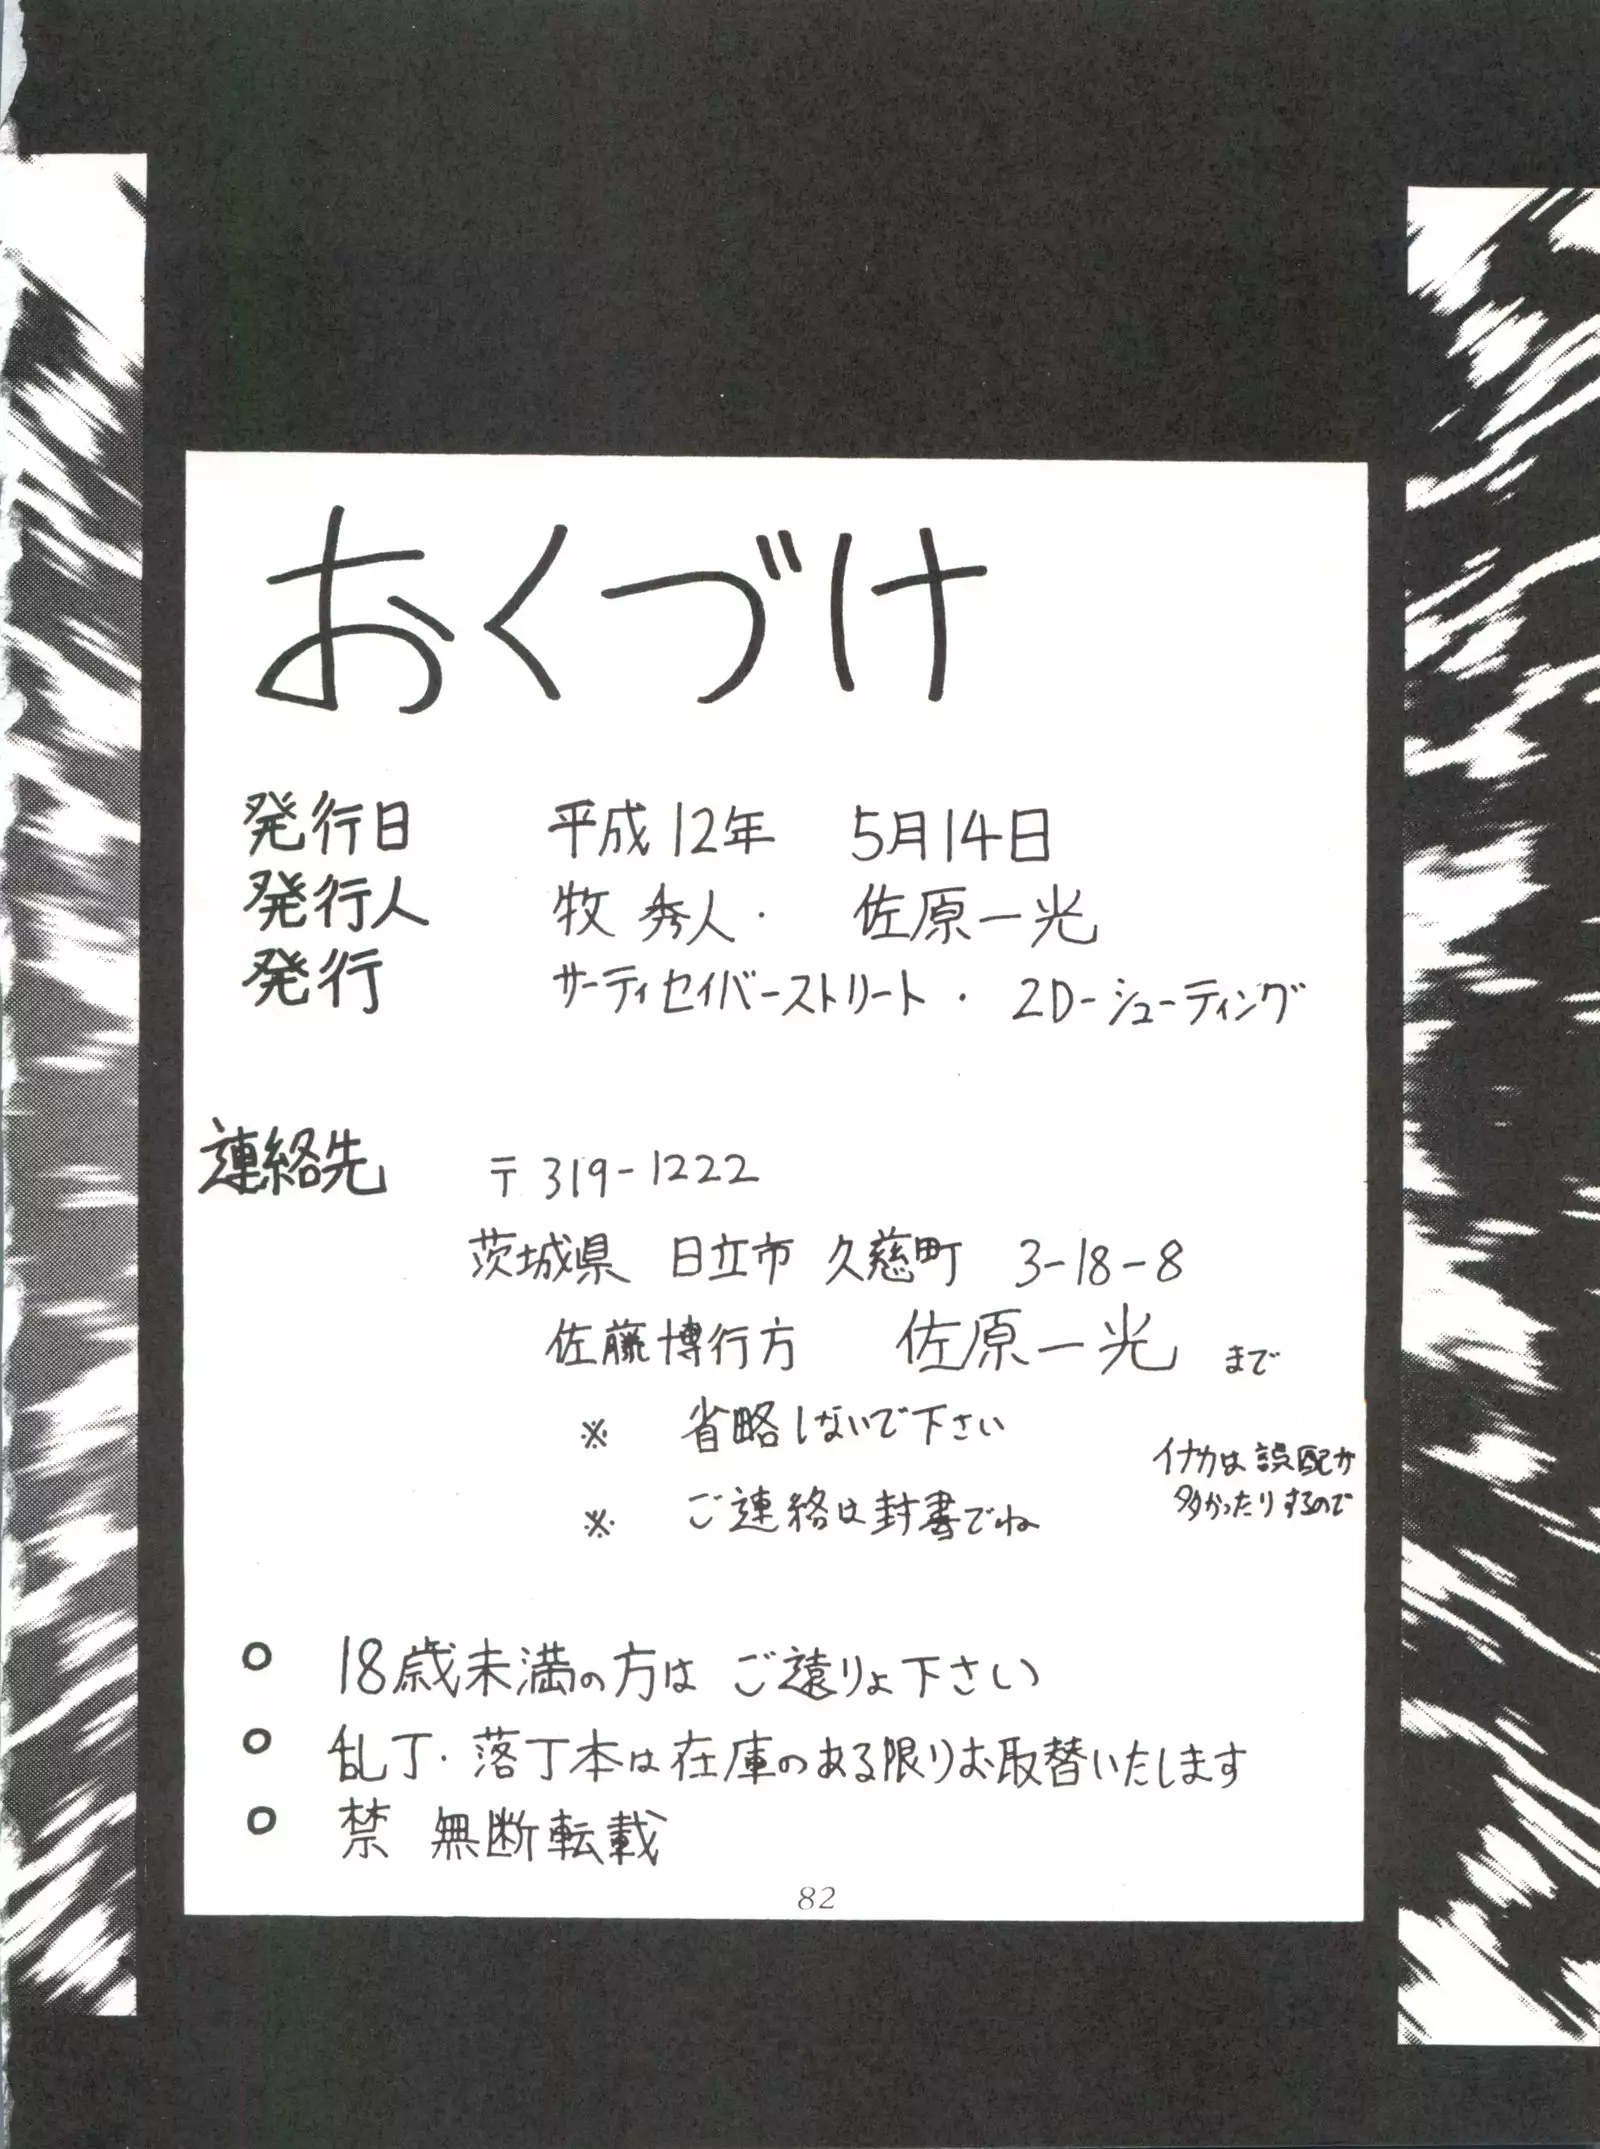 おくづけ
発行日 平成12年 5月14日
発行人 牧 秀人・ 佐原一光
発行 サーティセイバーストリート・2D-シューティング
連絡先 〒319-1222
茨城県 日立市 久慈町 3-18-8
佐藤博行方 佐原一光 まで
※ 省略しないで下さい
イナカは誤配が
多かったりするので
※ ご連絡は封書でね
○ 18歳未満の方は ご遠りょ下さい
○ 乱丁・落丁本は在庫のある限りお取替いたします
○ 禁 無断転載
82